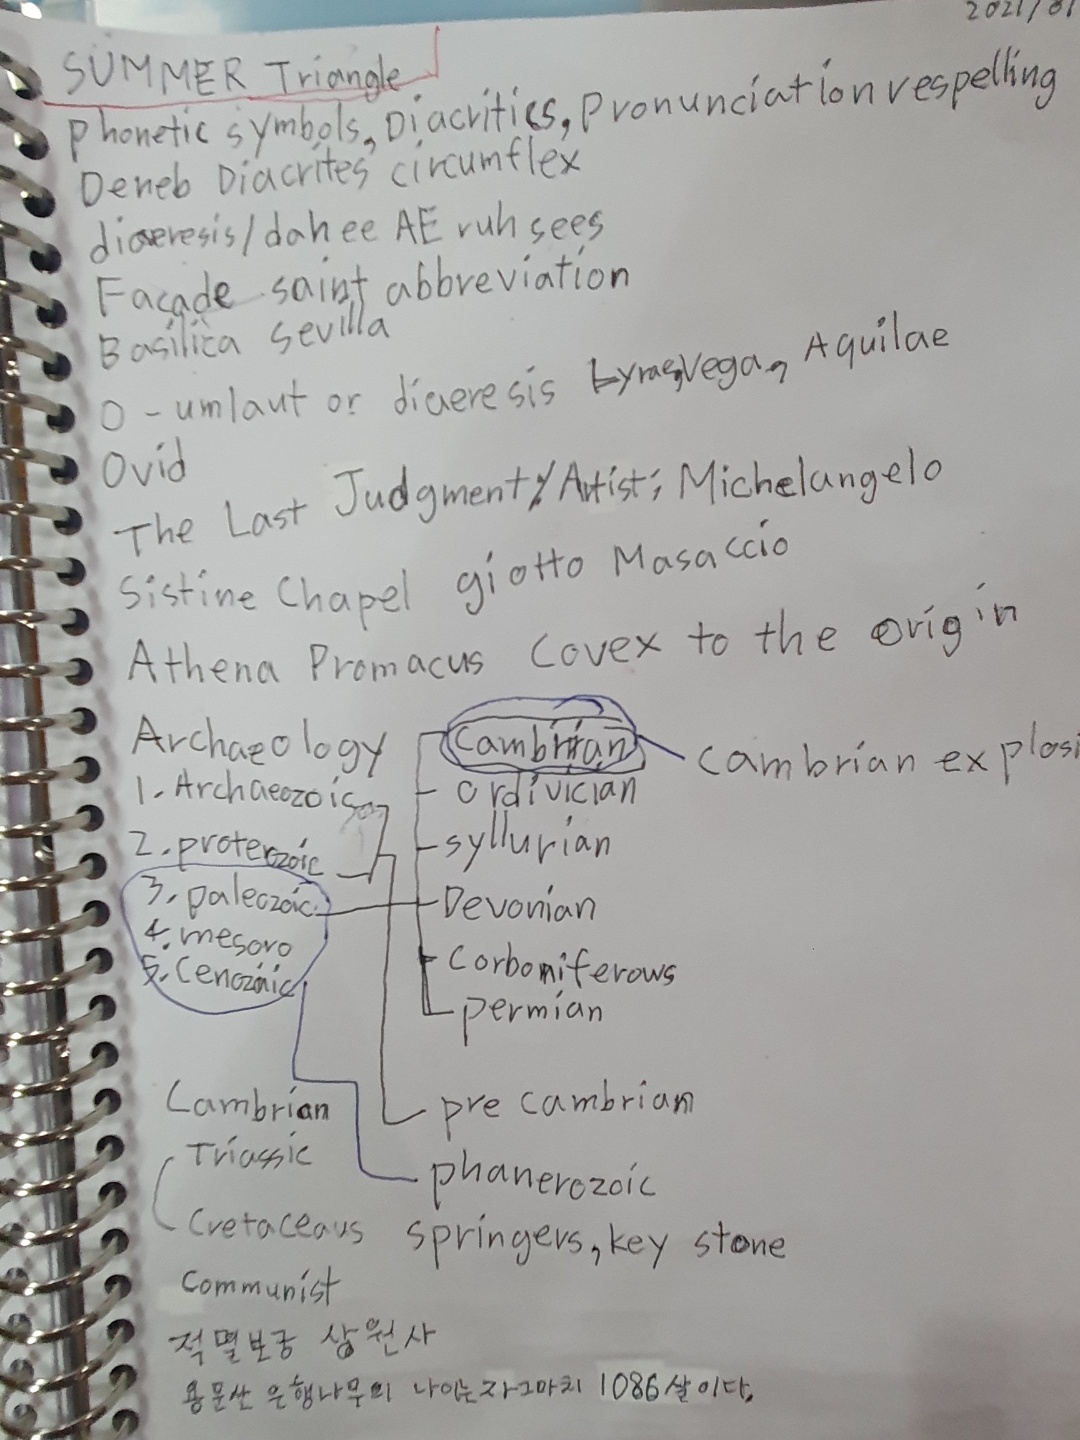 2021/01
SUMMER Triangle
Phonetic symbols, Diacritics, Pronunciation respelling
Deneb Diacrites circumflex
diaeresis/dah ee AE ruh sees
Façade saint abbreviation
Basilica sevilla
O - umlaut or diaeresis Lyrae, Vega, Aquilae
Ovid
The Last Judgment / Artist; Michelangelo
Sistine Chapel giotto Masaccio
Athena Promacus Covex to the origin
Archaeology Cambrian Cambrian explosi
1. Archaeozoic ordivician
2. proterozoic syllurian
3. paleozoic Devonian
4. mesozo
5. Cenozoic Corboniferows
permian
Cambrian pre cambrian
Triassic phanerozoic
Cretaceaus springers, key stone
Communist
적멸보궁 상원사
용문산 은행나무의 나이는 자그마치 1086살이다.